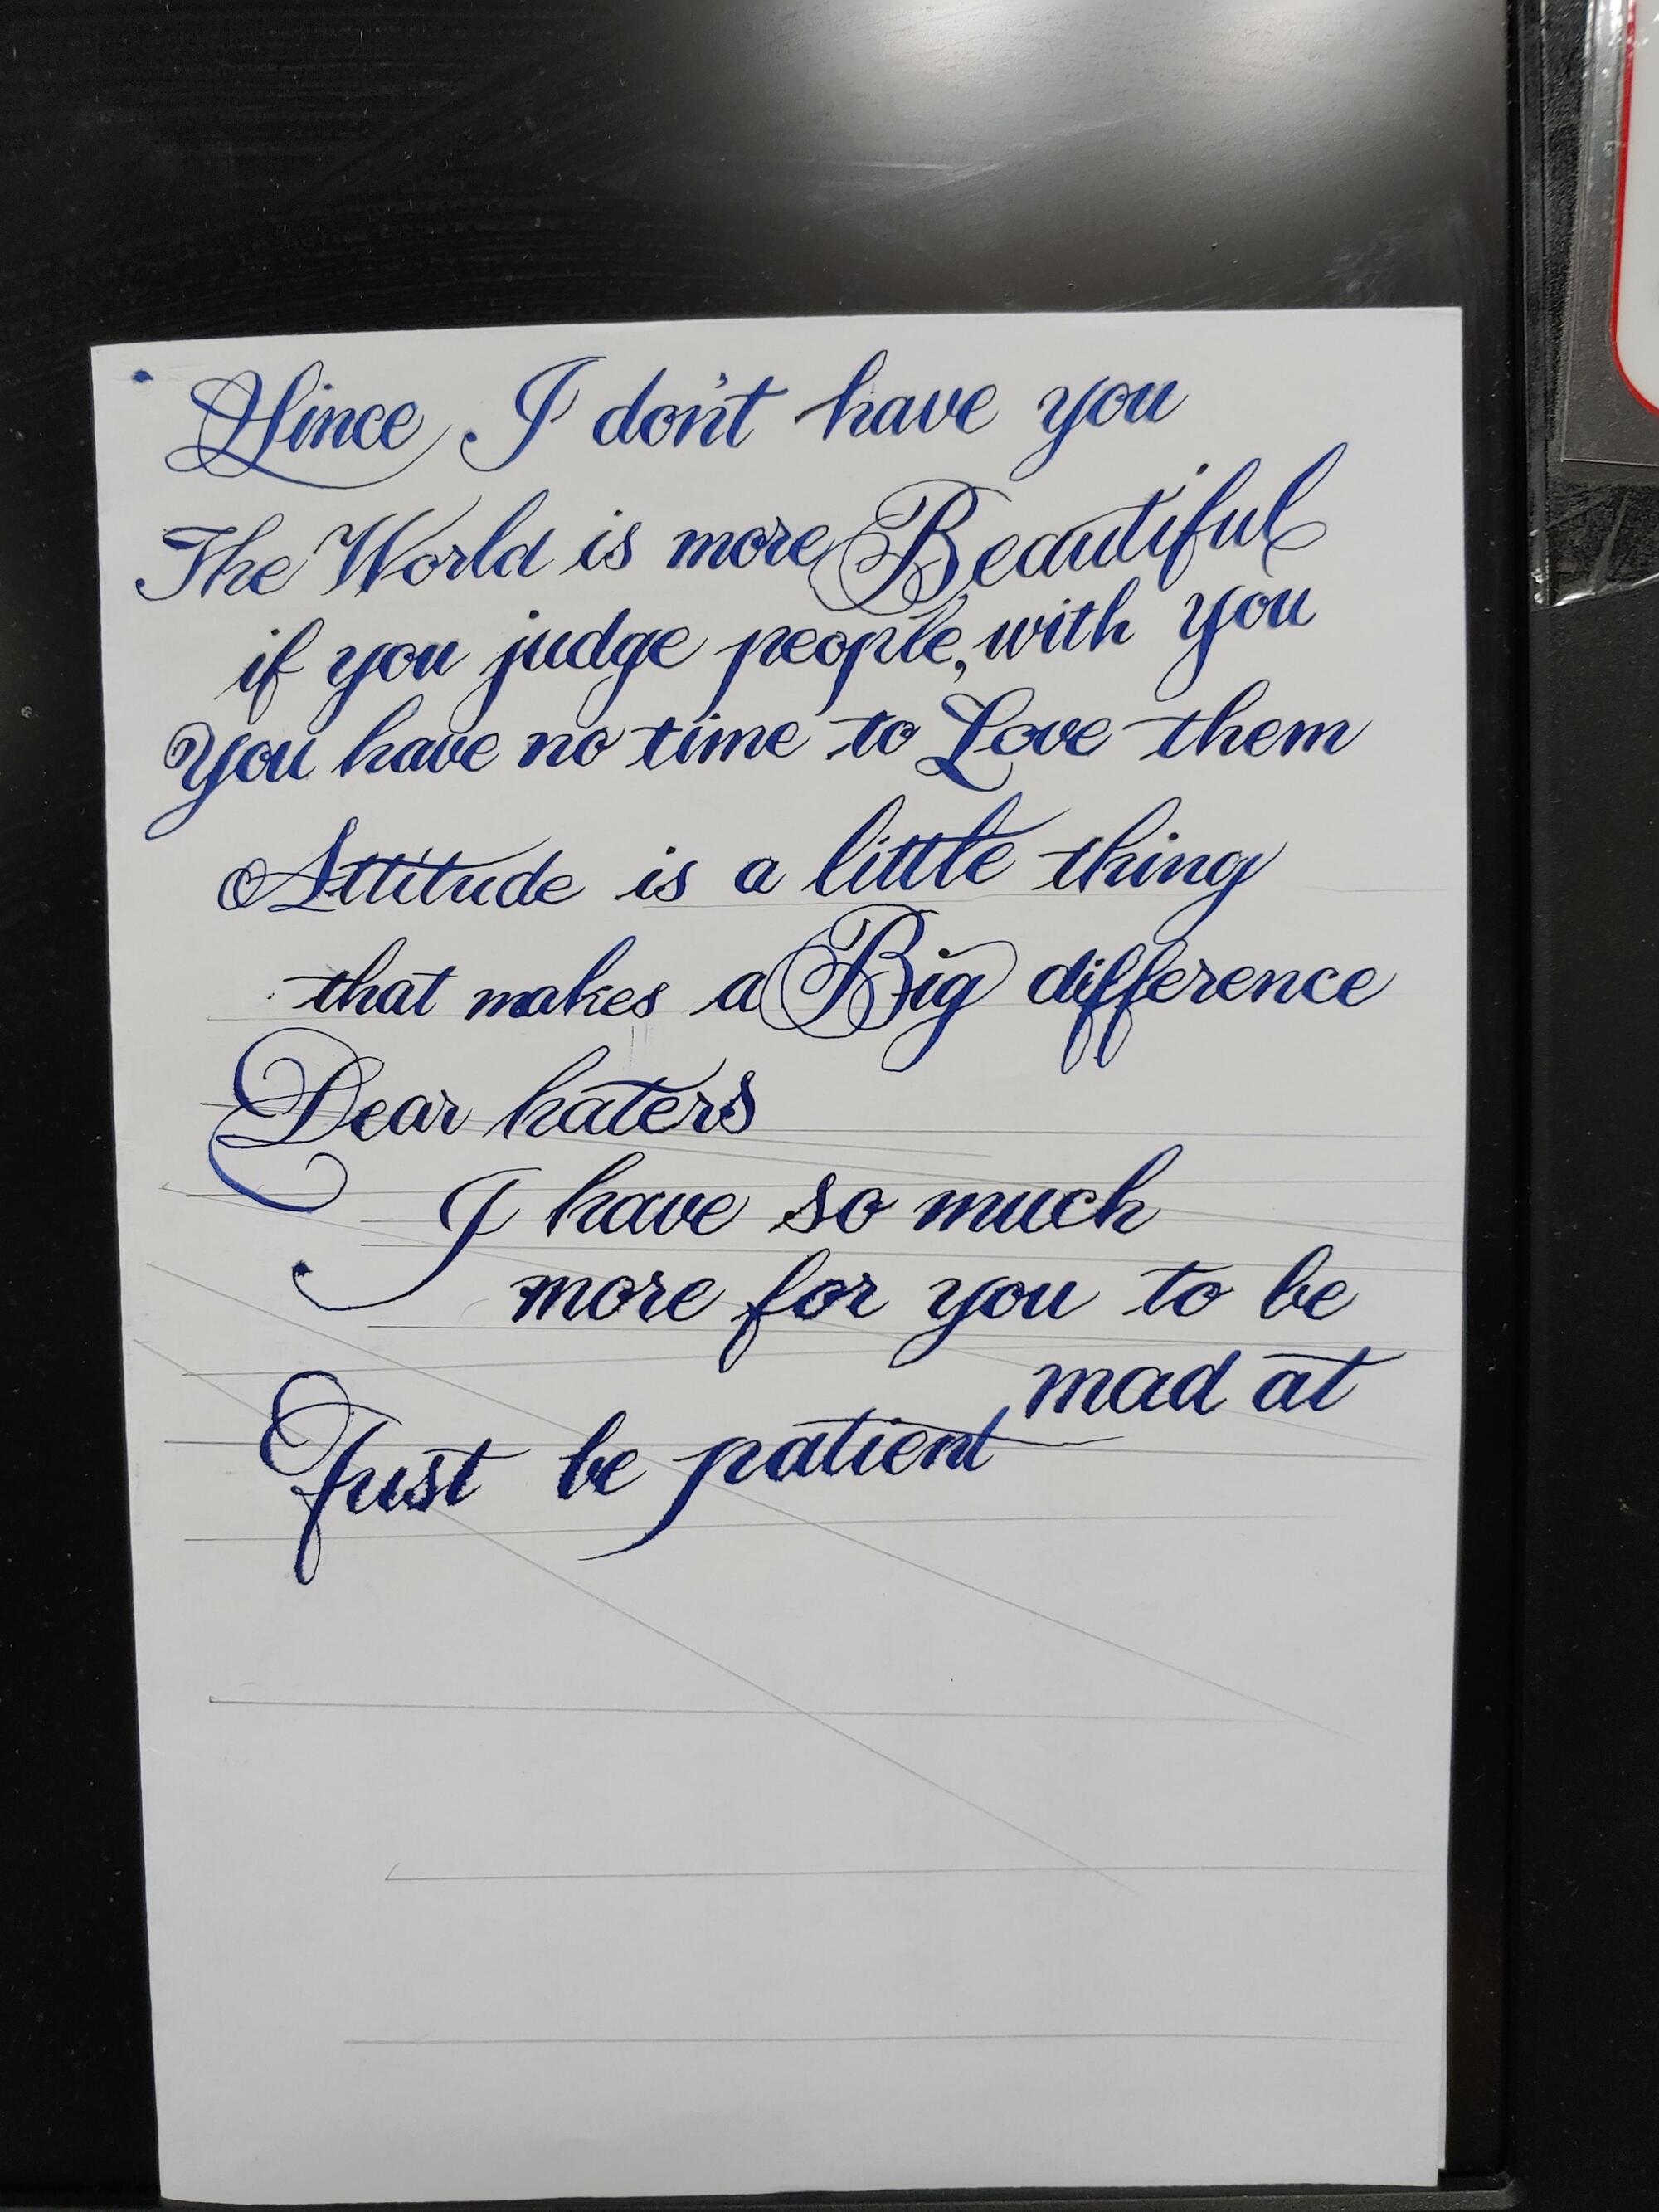 Since I don't have you
The World is more Beautiful
if you judge people, with you
You have no time to Love them
Attitude is a little thing
that makes a Big difference
Dear haters
I have so much
more for you to be
mad at
Just be patient